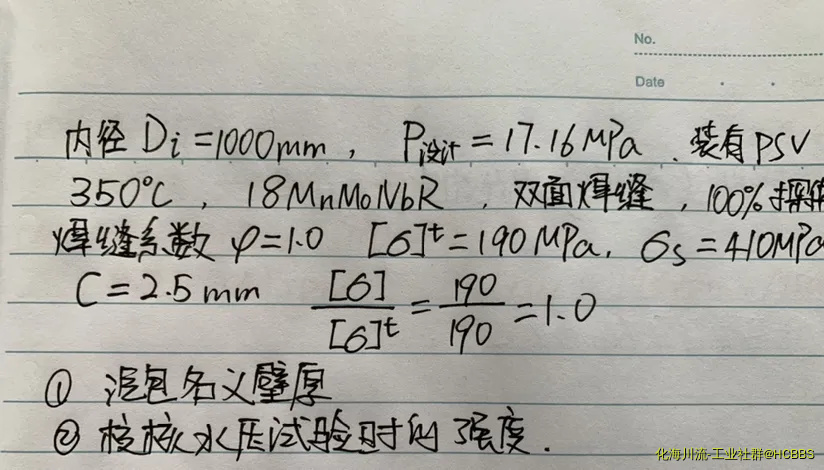 No.
Date
内径 Di=1000mm, P设计=17.16MPa、装有PSV
350℃, 18MnMoNbR, 双面焊缝, 100%探
焊缝系数 φ=1.0 [σ]ᵗ=190MPa, σs=410MPa
C=2.5mm [σ]/[σ]ᵗ=190/190=1.0
① 名义壁厚
② 校核水压试验时的强度.
化海川流-工业社群@HCBBS